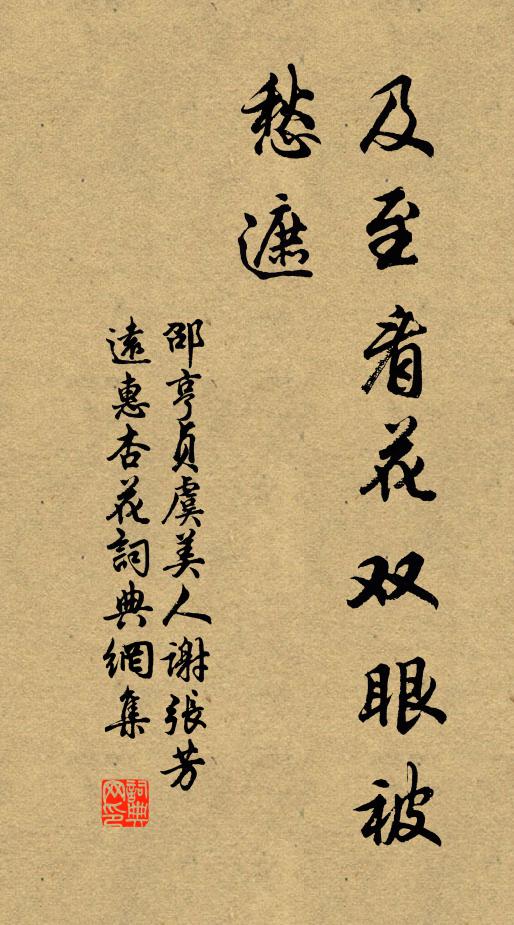 及至看花双眼被
愁遮
邵亨贞虞美人謝張芳
遠惠杏花詞典網集
詞典
网印